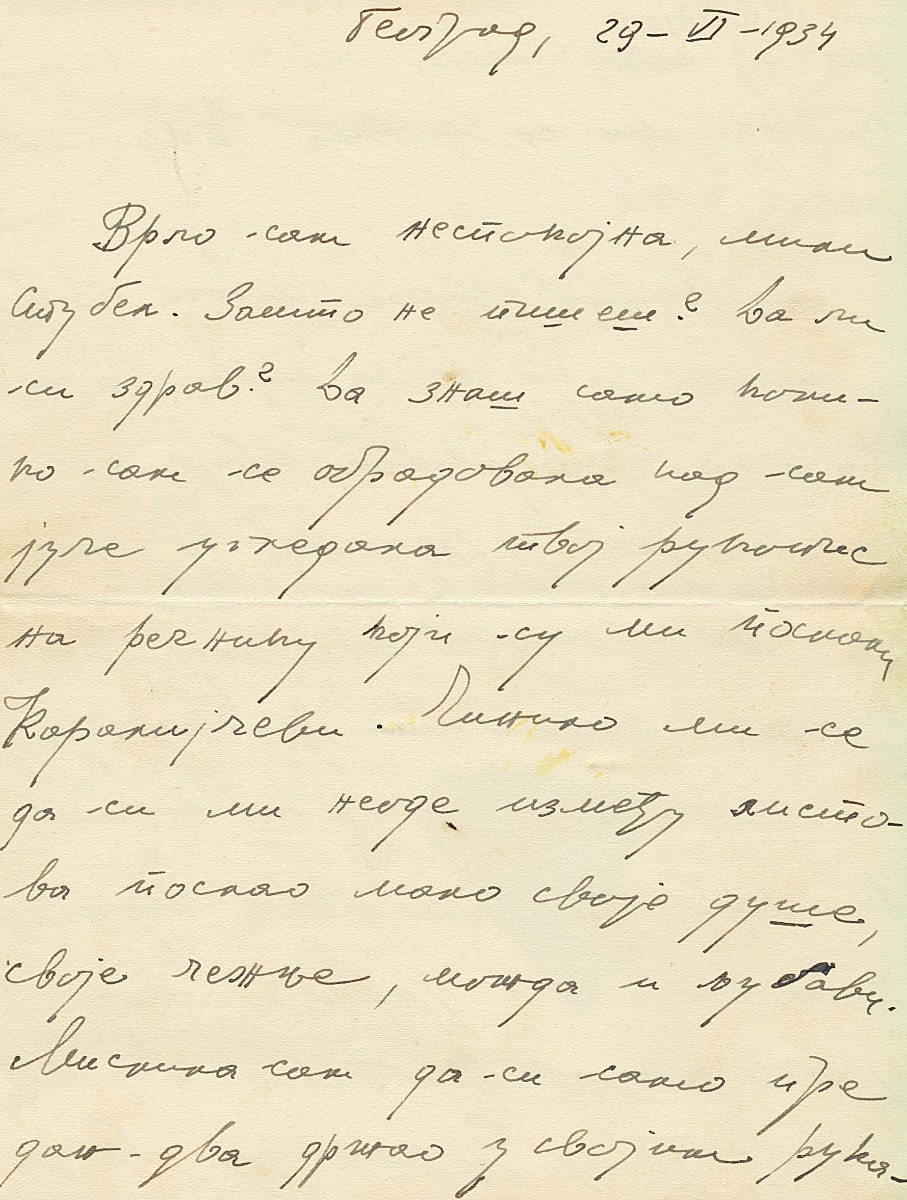 Београд, 29-VI-1934
Врло сам неспокојна, мили
Стубек. Зашто не пишеш? Да ли
си здрав? Да знаш само коли-
ко сам се обрадовала кад сам
јуче угледала твој рукопис
на речнику који су ми послали
Каралијчеви. Чинило ми се
да си ми негде између листо-
ва послао мало своје душе,
своје чежње, можда и љубави.
Мислила сам да си само пре
дан-два држао у својим рука-